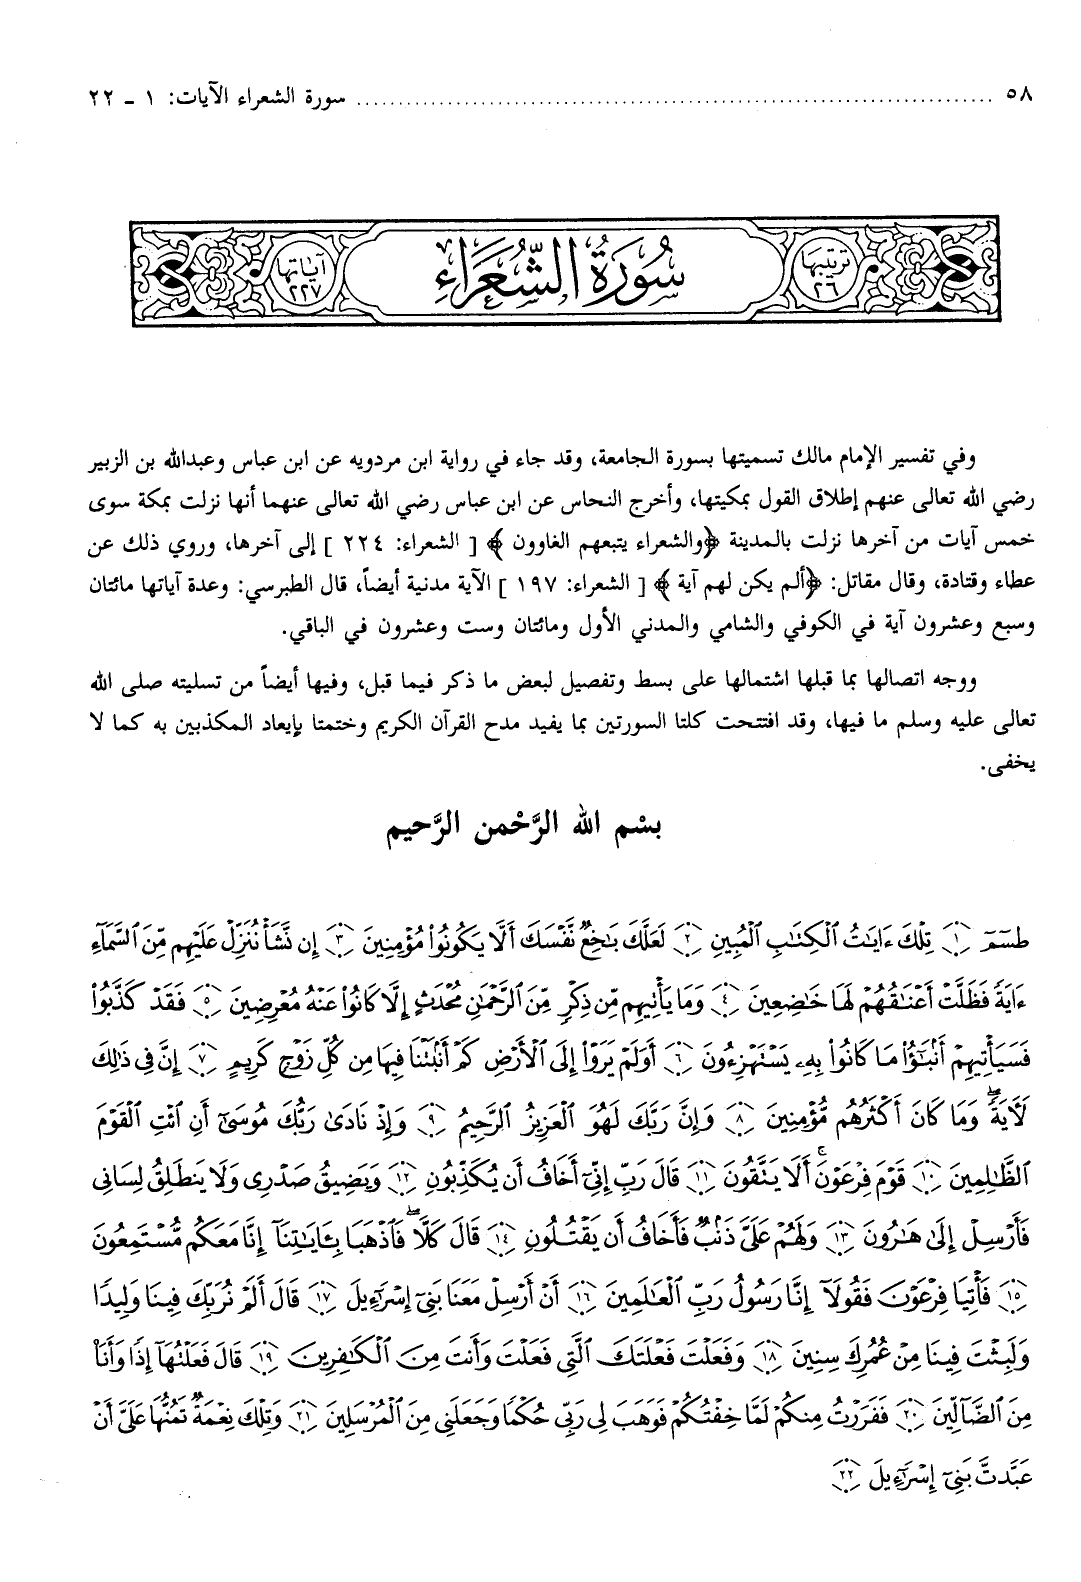 ٥٨ ........................................................................ سورة الشعراء الآيات: ١ - ٢٢
ترتيبها ٢٦ سُورَةُ الشُّعَرَاءِ آياتها ٢٢٧
وفي تفسير الإمام مالك تسميتها بسورة الجامعة، وقد جاء في رواية ابن مردويه عن ابن عباس وعبدالله بن الزبير
رضي الله تعالى عنهم إطلاق القول بمكيتها، وأخرج النحاس عن ابن عباس رضي الله تعالى عنهما أنها نزلت بمكة سوى
خمس آيات من آخرها نزلت بالمدينة ﴿والشعراء يتبعهم الغاوون﴾ [ الشعراء: ٢٢٤ ] إلى آخرها، وروي ذلك عن
عطاء وقتادة، وقال مقاتل: ﴿ألم يكن لهم آية﴾ [ الشعراء: ١٩٧ ] الآية مدنية أيضاً، قال الطبرسي: وعدة آياتها مائتان
وسبع وعشرون آية في الكوفي والشامي والمدني الأول ومائتان وست وعشرون في الباقي.
ووجه اتصالها بما قبلها اشتمالها على بسط وتفصيل لبعض ما ذكر فيما قبل، وفيها أيضاً من تسليته صلى الله
تعالى عليه وسلم ما فيها، وقد افتتحت كلتا السورتين بما يفيد مدح القرآن الكريم وختمتا بإيعاد المكذبين به كما لا
يخفى.
بسْم الله الرَّحْمن الرَّحيم
طسٓمٓ ﴿١﴾ تِلْكَ ءَايَٰتُ ٱلْكِتَٰبِ ٱلْمُبِينِ ﴿٢﴾ لَعَلَّكَ بَٰخِعٌ نَّفْسَكَ أَلَّا يَكُونُوا۟ مُؤْمِنِينَ ﴿٣﴾ إِن نَّشَأْ نُنَزِّلْ عَلَيْهِم مِّنَ ٱلسَّمَآءِ
ءَايَةً فَظَلَّتْ أَعْنَٰقُهُمْ لَهَا خَٰضِعِينَ ﴿٤﴾ وَمَا يَأْتِيهِم مِّن ذِكْرٍ مِّنَ ٱلرَّحْمَٰنِ مُحْدَثٍ إِلَّا كَانُوا۟ عَنْهُ مُعْرِضِينَ ﴿٥﴾ فَقَدْ كَذَّبُوا۟
فَسَيَأْتِيهِمْ أَنۢبَٰٓؤُا۟ مَا كَانُوا۟ بِهِۦ يَسْتَهْزِءُونَ ﴿٦﴾ أَوَلَمْ يَرَوْا۟ إِلَى ٱلْأَرْضِ كَمْ أَنۢبَتْنَا فِيهَا مِن كُلِّ زَوْجٍ كَرِيمٍ ﴿٧﴾ إِنَّ فِى ذَٰلِكَ
لَءَايَةً ۖ وَمَا كَانَ أَكْثَرُهُم مُّؤْمِنِينَ ﴿٨﴾ وَإِنَّ رَبَّكَ لَهُوَ ٱلْعَزِيزُ ٱلرَّحِيمُ ﴿٩﴾ وَإِذْ نَادَىٰ رَبُّكَ مُوسَىٰٓ أَنِ ٱئْتِ ٱلْقَوْمَ
ٱلظَّٰلِمِينَ ﴿١٠﴾ قَوْمَ فِرْعَوْنَ ۚ أَلَا يَتَّقُونَ ﴿١١﴾ قَالَ رَبِّ إِنِّىٓ أَخَافُ أَن يُكَذِّبُونِ ﴿١٢﴾ وَيَضِيقُ صَدْرِى وَلَا يَنطَلِقُ لِسَانِى
فَأَرْسِلْ إِلَىٰ هَٰرُونَ ﴿١٣﴾ وَلَهُمْ عَلَىَّ ذَنۢبٌ فَأَخَافُ أَن يَقْتُلُونِ ﴿١٤﴾ قَالَ كَلَّا ۖ فَٱذْهَبَا بِـَٔايَٰتِنَآ إِنَّا مَعَكُم مُّسْتَمِعُونَ
﴿١٥﴾ فَأْتِيَا فِرْعَوْنَ فَقُولَآ إِنَّا رَسُولُ رَبِّ ٱلْعَٰلَمِينَ ﴿١٦﴾ أَنْ أَرْسِلْ مَعَنَا بَنِىٓ إِسْرَٰٓءِيلَ ﴿١٧﴾ قَالَ أَلَمْ نُرَبِّكَ فِينَا وَلِيدًا
وَلَبِثْتَ فِينَا مِنْ عُمُرِكَ سِنِينَ ﴿١٨﴾ وَفَعَلْتَ فَعْلَتَكَ ٱلَّتِى فَعَلْتَ وَأَنتَ مِنَ ٱلْكَٰفِرِينَ ﴿١٩﴾ قَالَ فَعَلْتُهَآ إِذًا وَأَنَا۠
مِنَ ٱلضَّآلِّينَ ﴿٢٠﴾ فَفَرَرْتُ مِنكُمْ لَمَّا خِفْتُكُمْ فَوَهَبَ لِى رَبِّى حُكْمًا وَجَعَلَنِى مِنَ ٱلْمُرْسَلِينَ ﴿٢١﴾ وَتِلْكَ نِعْمَةٌ تَمُنُّهَا عَلَىَّ أَنْ
عَبَّدتَّ بَنِىٓ إِسْرَٰٓءِيلَ ﴿٢٢﴾